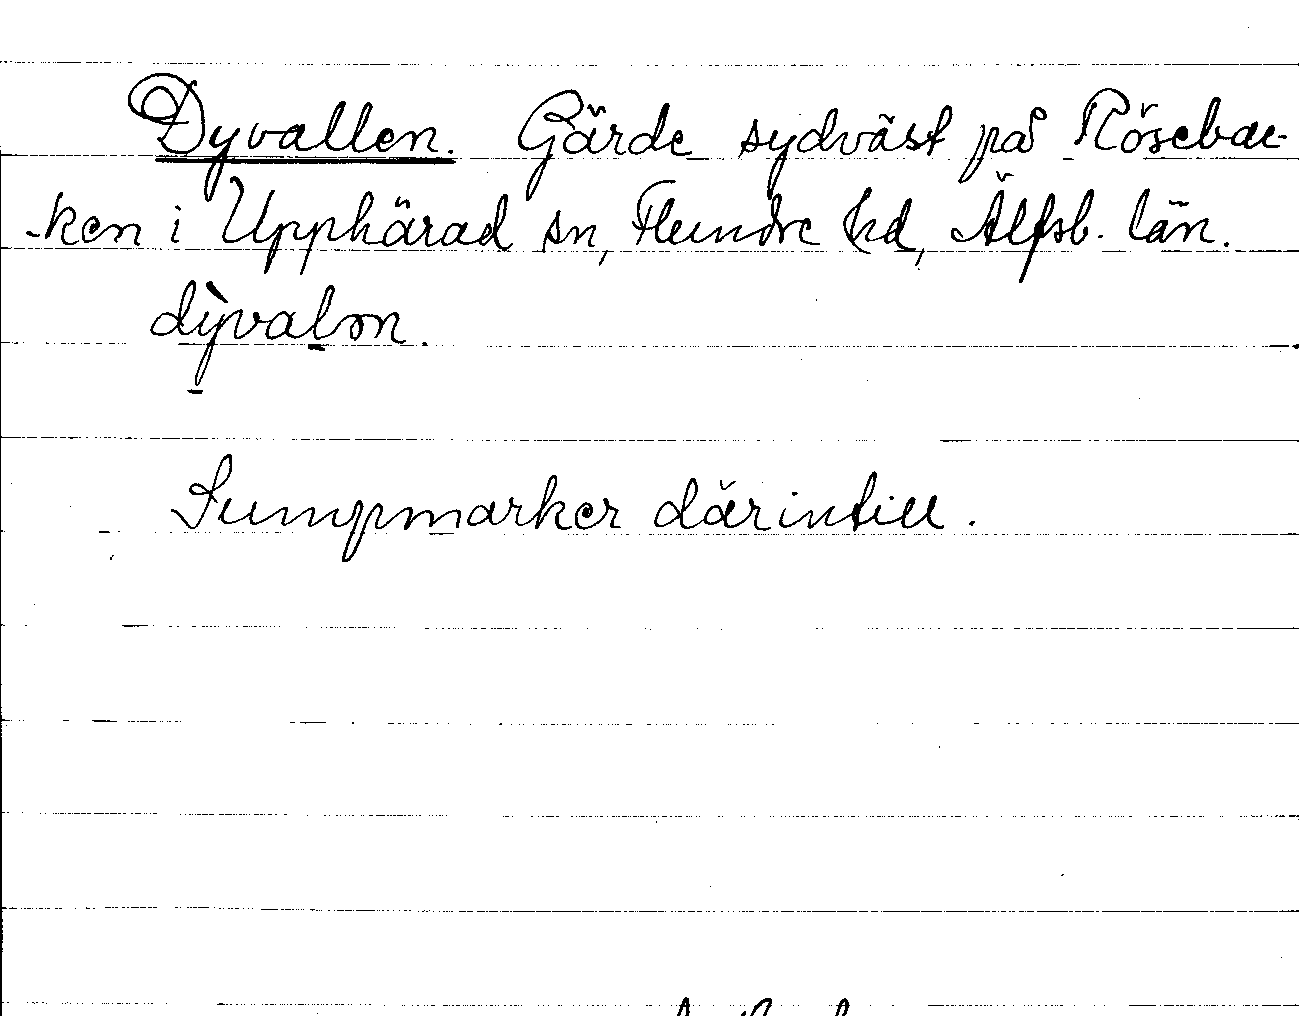 Dyvallen. Gärde sydväst på Rösebac-
-ken i Upphärad sn, Flundre hd, Älfsb. län.
dỳ̱vaḻən.
Sumpmarker därintill.